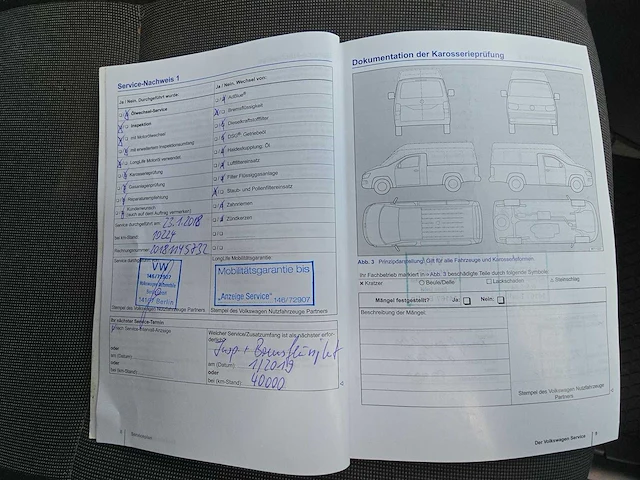 Service-Nachweis 1
Ja / Nein, Durchgeführt wurde:
Ölwechsel-Service
Inspektion
mit Motorölwechsel
mit erweitertem Inspektionsumfang
LongLife Motoröl verwendet
Karosserieprüfung
Gasanlagenprüfung
Reparaturempfehlung
Kundenwunsch
(auch auf dem Auftrag vermerken)
Service durchgeführt am: 23.1.2018
bei km-Stand: 10224
Rechnungsnummer:
Ja / Nein, Wechsel von:
AdBlue®
Bremsflüssigkeit
Dieselkraftstofffilter
DSG® Getriebeöl
Haldexkupplung: Öl
Luftfiltereinsatz
Filter Flüssiggasanlage
Staub- und Pollenfiltereinsatz
Zahnriemen
Zündkerzen
VW
146/72907
Volkswagen Automobile
Berlin
Stempel des Volkswagen Nutzfahrzeuge Partners
LongLife Mobilitätsgarantie:
Mobilitätsgarantie bis
„Anzeige Service" 146/72907
Stempel des Volkswagen Nutzfahrzeuge Partners
Ihr nächster Service-Termin
nach Service-Intervall-Anzeige
oder
am (Datum):
oder
bei (km-Stand):
Welcher Service/Zusatzumfang ist als nächster erfor-
derlich?
Insp + Bremsflüssigkeit
am (Datum): 1/2019
oder
bei (km-Stand): 40000
Dokumentation der Karosserieprüfung
Abb. 3 Prinzipdarstellung: Gilt für alle Fahrzeuge und Karosserieformen.
Ihr Fachbetrieb markiert in Abb. 3 beschädigte Teile durch folgende Symbole:
× Kratzer
○ Beule/Delle
□ Lackschaden
△ Steinschlag
Mängel festgestellt? Ja: Nein:
Beschreibung der Mängel:
Stempel des Volkswagen Nutzfahrzeuge
Partners
Der Volkswagen Service 9